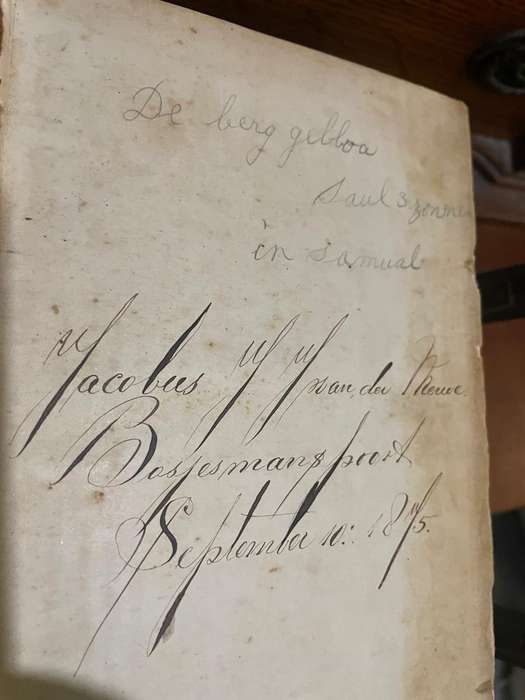 De berg gelboa
Saul 3 zonnen
in Samual
Jacobus J J van der Merwe
Bosjesmanspoort
September 10: 1875.